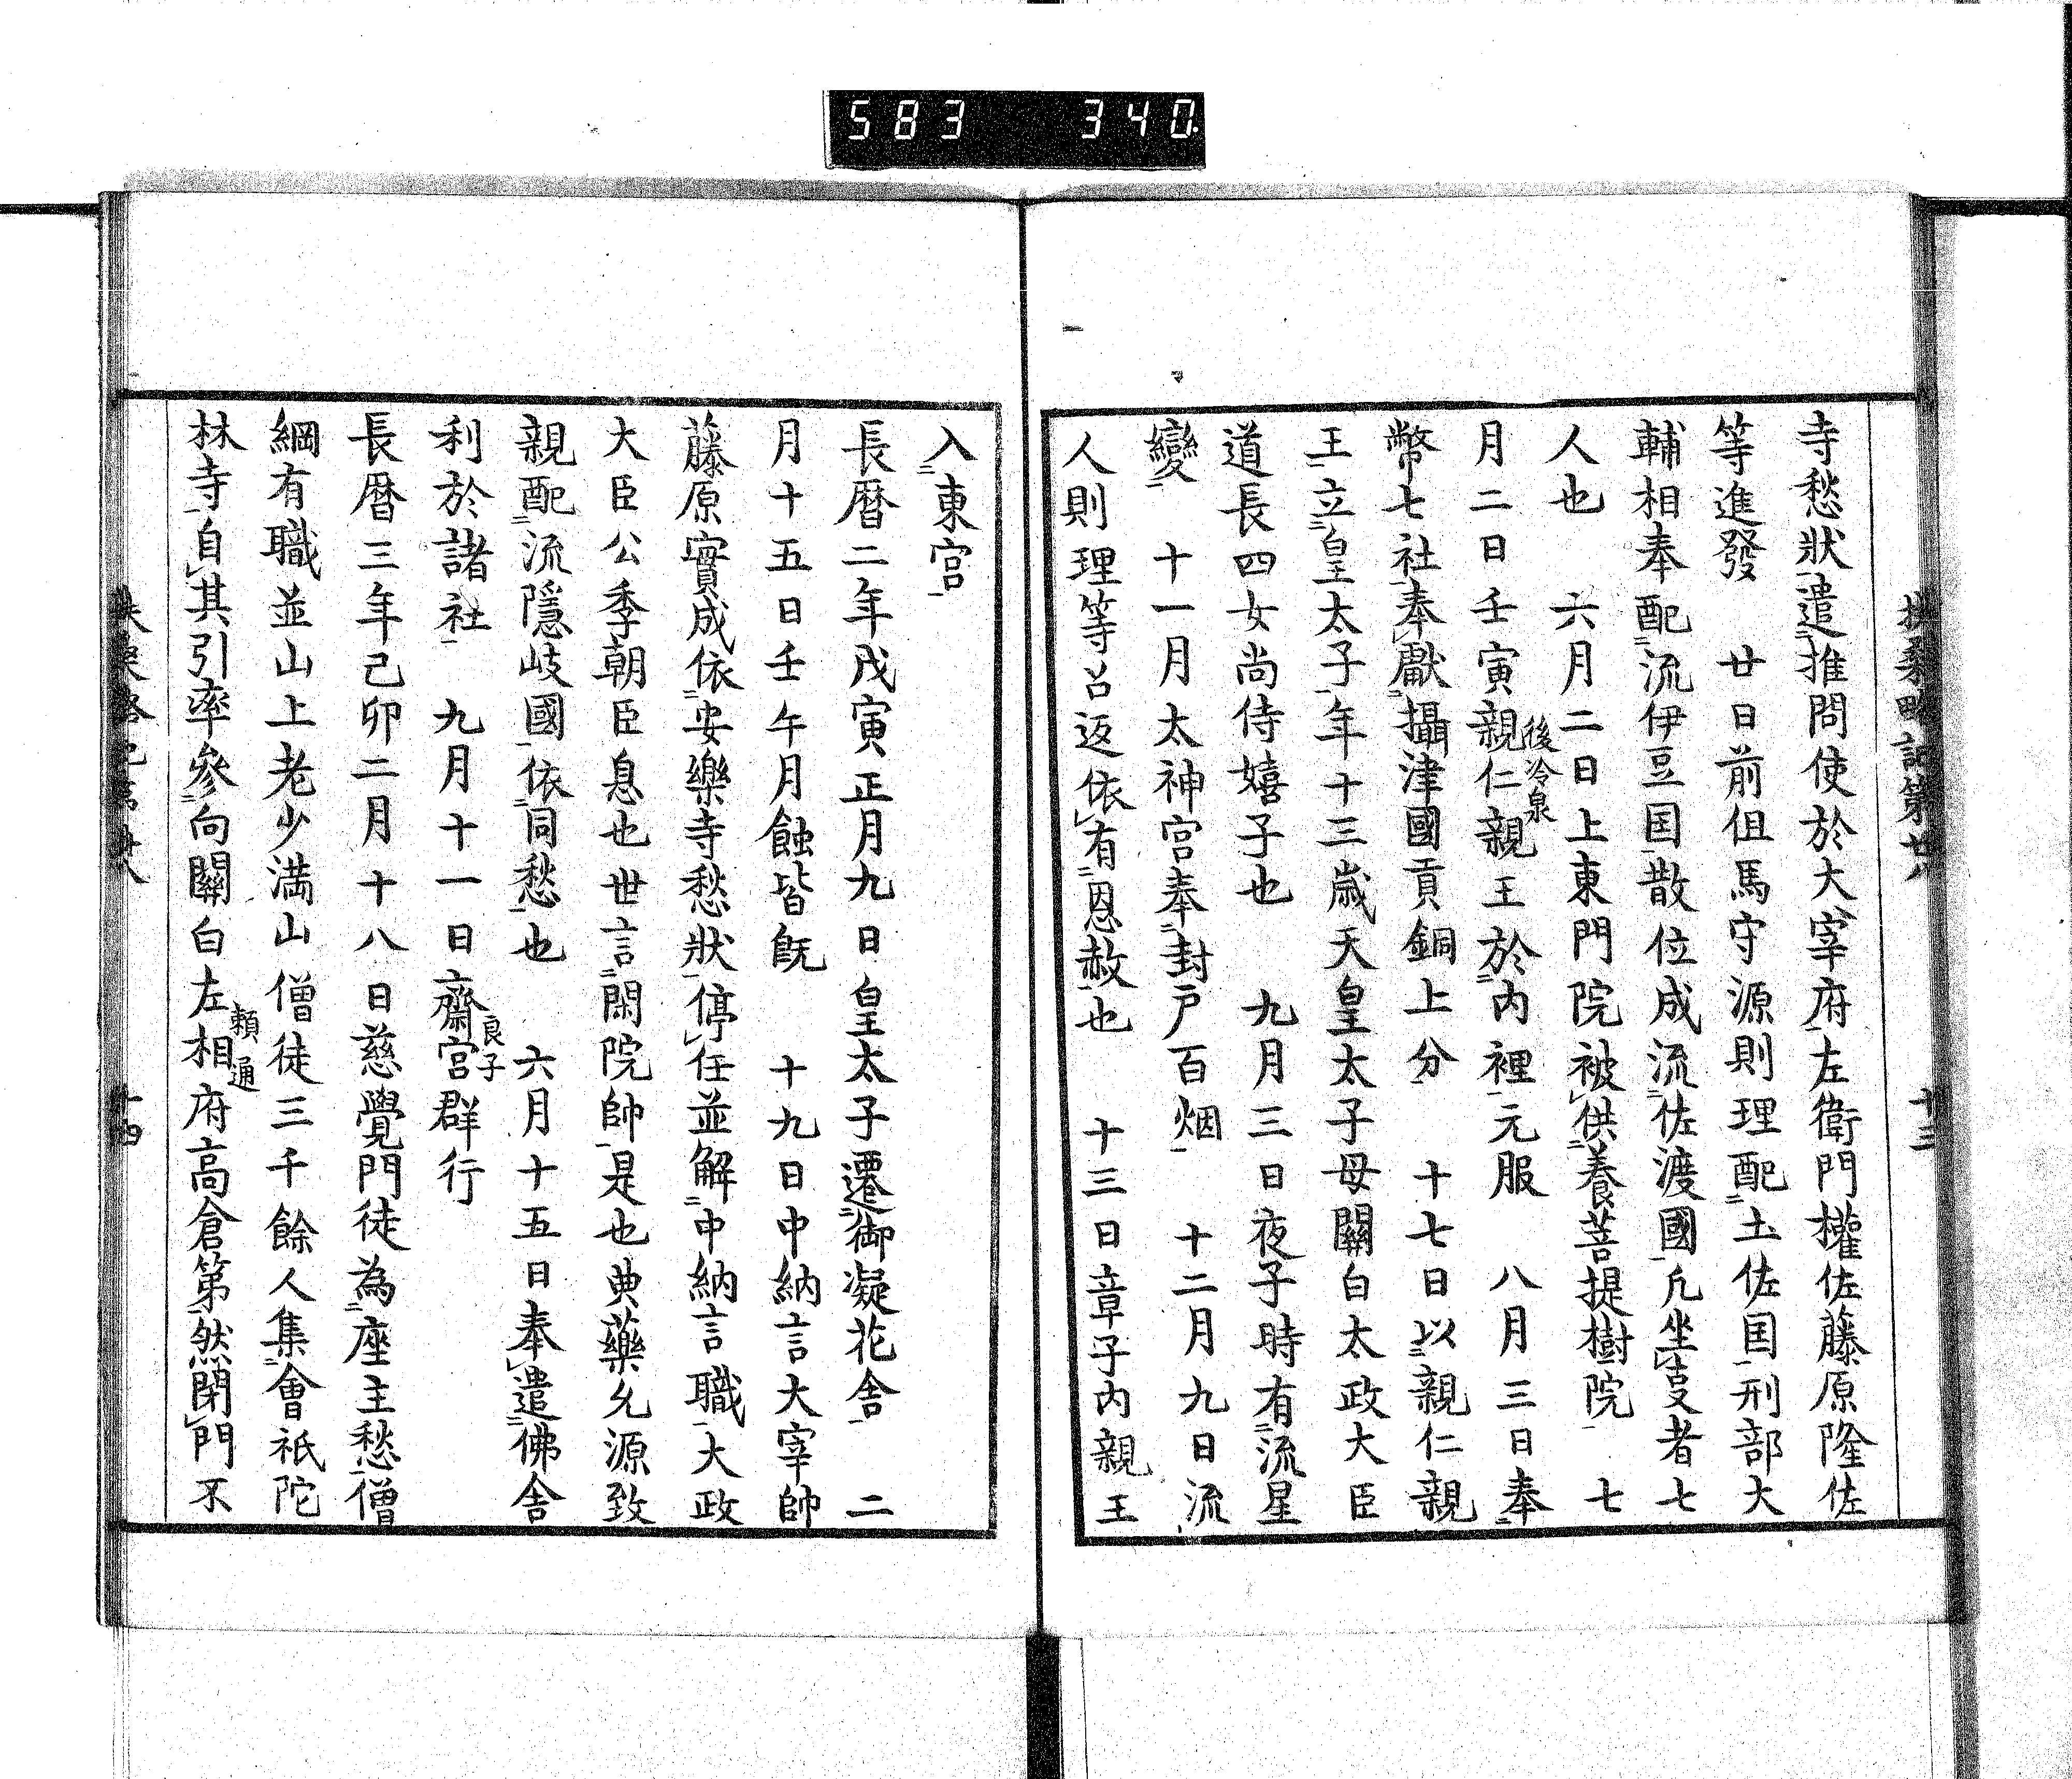 583 340.
扶桑略記第廿八 十三
寺愁狀遣推問使於大宰府左衛門權佐藤原隆佐
等進發 廿日前但馬守源則理配土佐国刑部大
輔相奉配流伊豆国散位成流佐渡國凢坐叓者七
人也 六月二日上東門院被供養菩提樹院 七
月二日壬寅親仁親王於内裡元服 八月三日奉
後冷泉
幣七社奉獻攝津國貢銅上分 十七日以親仁親
王立皇太子年十三歳天皇太子母關白太政大臣
道長四女尚侍嬉子也 九月三日夜子時有流星
變 十一月太神宮奉封戸百烟 十二月九日流
人則理等召返依有恩赦也 十三日章子内親王
入東宮
長暦二年戊寅正月九日皇太子遷御凝花舎 二
月十五日壬午月蝕皆既 十九日中納言大宰帥
藤原實成依安樂寺愁狀停任並解中納言職大政
大臣公季朝臣息也世言閑院帥是也典藥允源致
親配流隱岐國依同愁也 六月十五日奉遣佛舎
利於諸社 九月十一日齋宮群行
良子
長暦三年己卯二月十八日慈覺門徒為座主愁僧
綱有職並山上老少満山僧徒三千餘人集會祇陀
林寺自其引率參向關白左相府高倉第然閉門不
頼通
十四